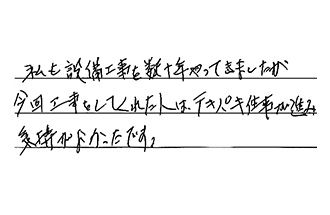 私も設備工事を数十年やってきましたが
今回工事をしてくれた人は、テキパキ仕事が進み
気持がよかったです。